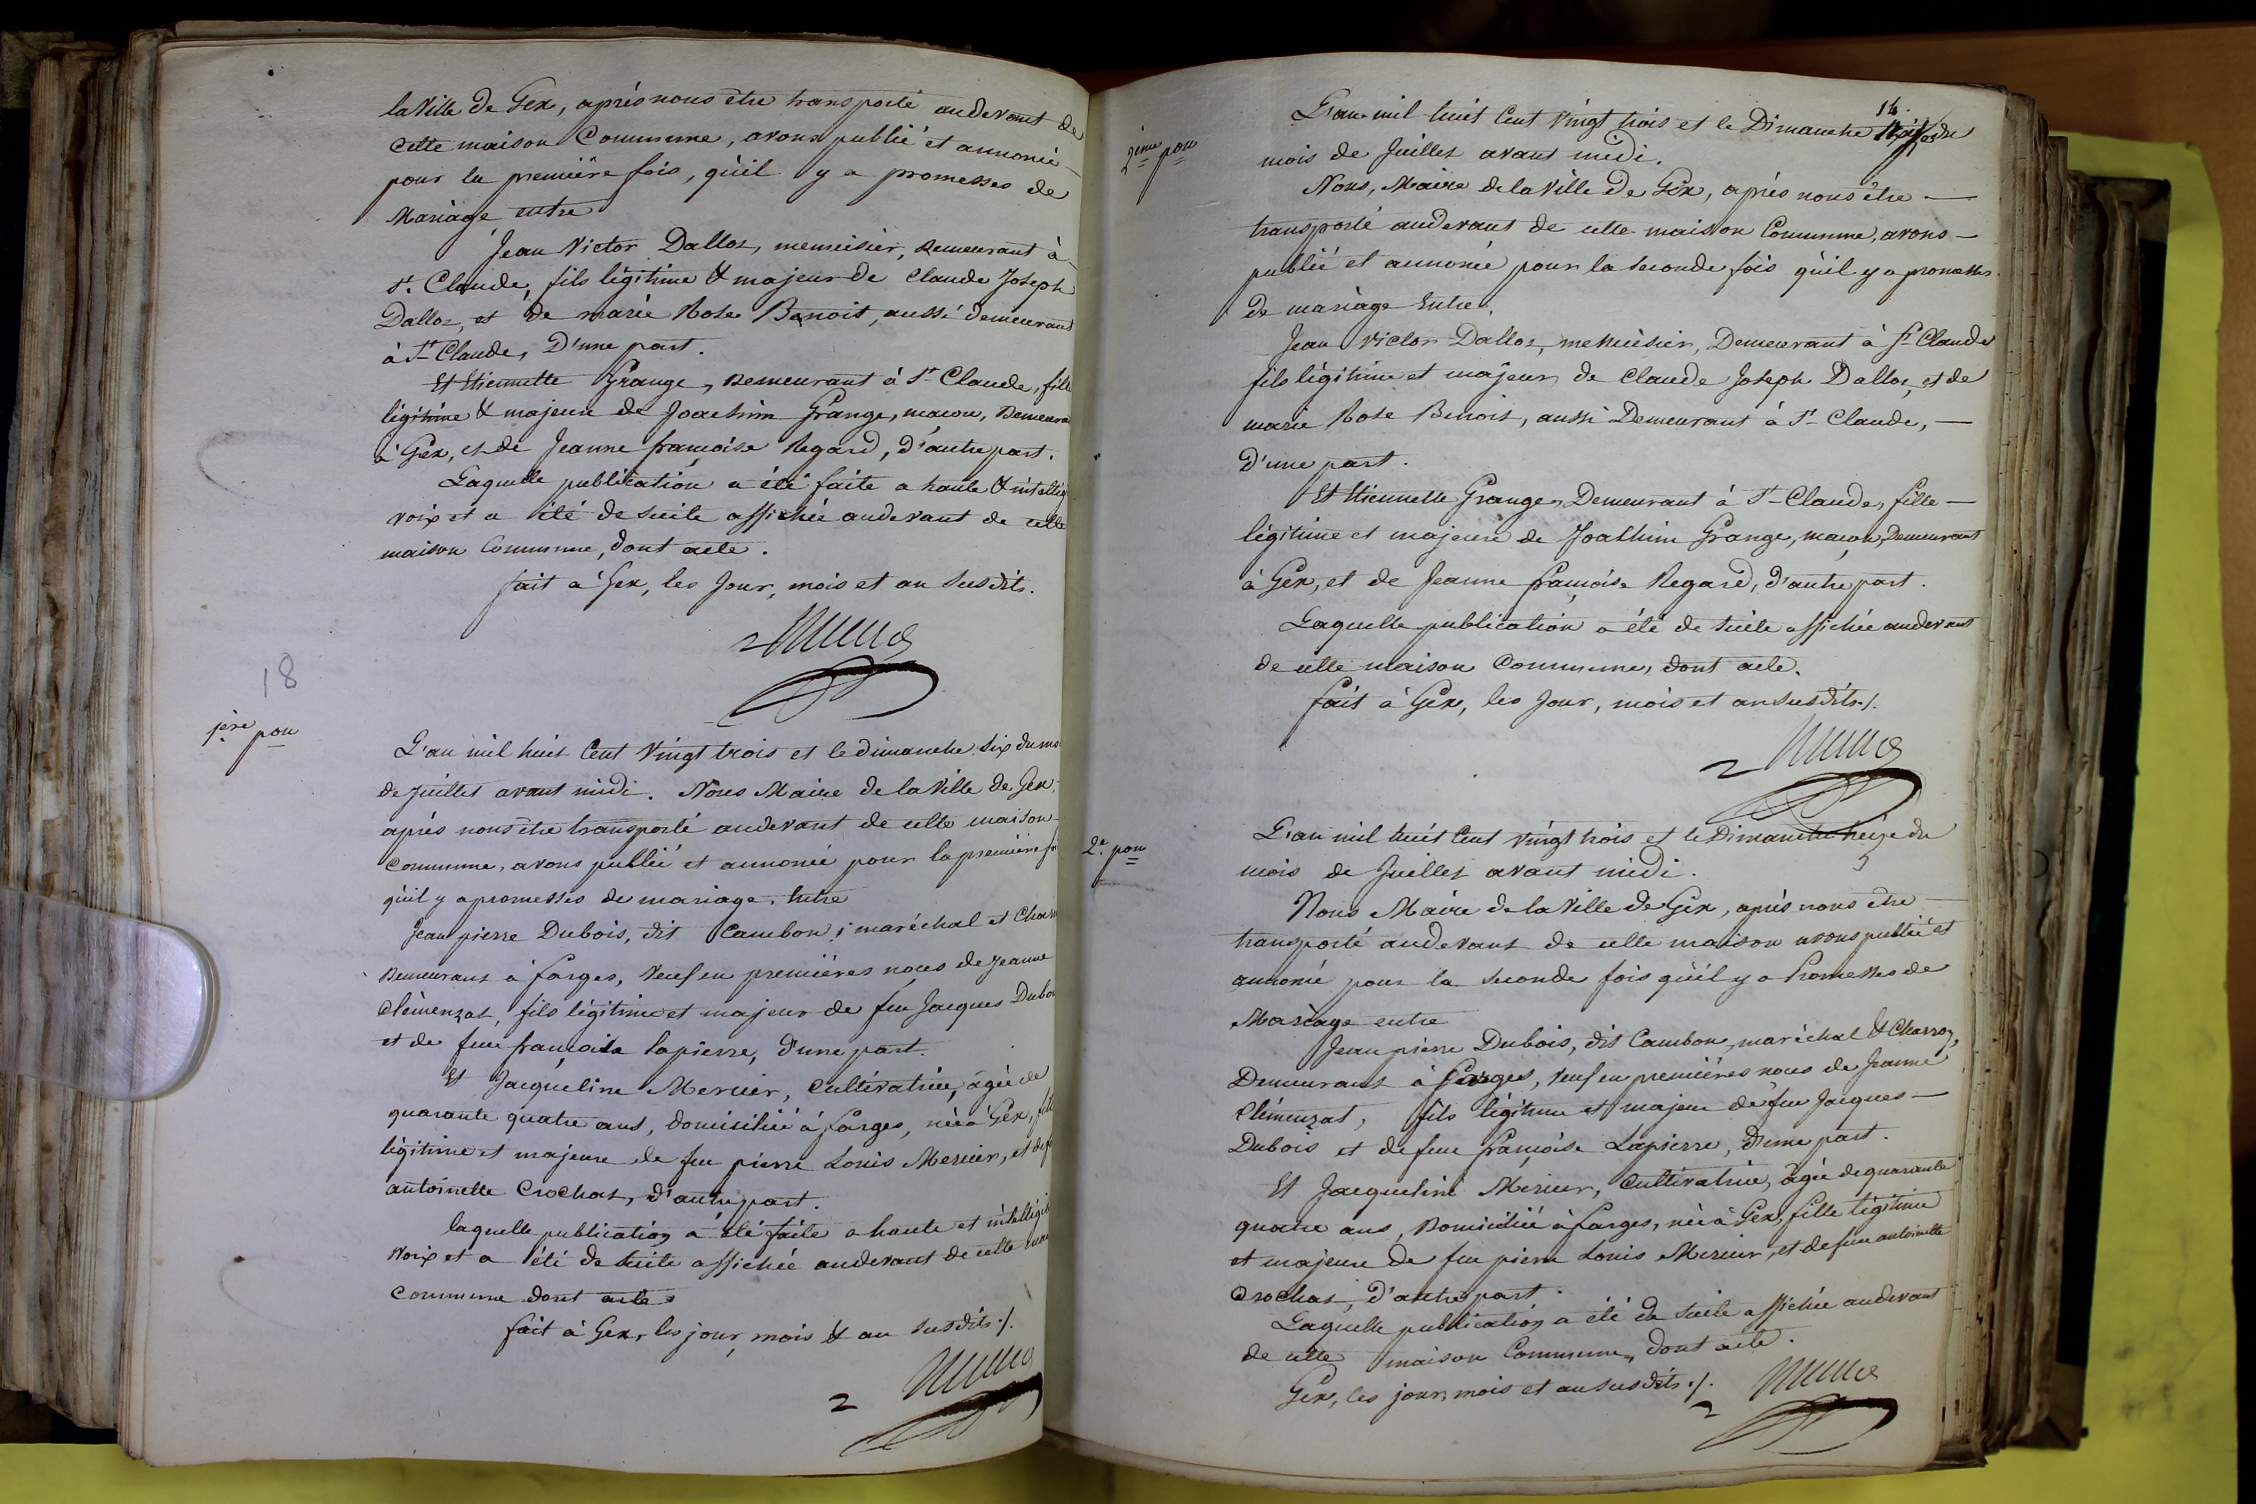 la Ville de Gex, après nous être transporté audevant de
cette maison Commune, avons publié et annoncé
pour la première fois, qu'il y a promesses de
Mariage entre
Jean Victor Dalloz, menuisier, demeurant à
St. Claude, fils légitime & majeur de Claude Joseph
Dalloz, et de marie Rose Benoit, aussi demeurant
à St Claude, D'une part.
Et Etiennette Grange, demeurant à St Claude, fille
légitime & majeure de Joachim Grange, maçon, Demeurant
à Gex, et de Jeanne françoise Regard, d'autre part.
Laquelle publication a été faite a haute & intellig
voix et a été de suite affichée audevant de cette
maison Commune, dont acte.
fait à Gex, les Jour, mois et an susdits.
18
1ère pon
L'an mil huit Cent Vingt trois et le dimanche six du mo
de juillet avant midi. Nous Maire de la Ville de Gex,
après nous être transporté audevant de cette maison
Commune, avons publié et annoncé pour la première f
qu'il y a promesses de mariage. Entre
Jean pierre Dubois, dit Cambon, maréchal et Char
Demeurant à farges, veuf en premières noces de Jeanne
Clémenzat, fils légitime et majeur de feu Jacques Dubo
et de feue françoise Lapierre, d'une part.
Et Jacqueline Mercier, Cultivatrice, âgée de
quarante quatre ans, domiciliée à farges, née à Gex, fille
légitime et majeure de feu pierre Louis Mercier, et de f
antoinette Crochat, d'autre part.
laquelle publication a été faite a haute et intelligib
Voix et a été de suite affichée audevant de cette mai
Commune dont acte.
fait à Gex, les jour, mois & an susdits./.
2ème pon
L'an mil huit Cent Vingt trois et le Dimanche 13. du
mois de Juillet avant midi.
Nous, Maire de la Ville de Gex, après nous être
transporté audevant de cette maison Commune, avons
publié et annoncé pour la seconde fois qu'il y a promesses
de mariage Entre.
Jean Victor Dalloz, menuisier, Demeurant à St Claude
fils légitime et majeur de Claude Joseph Dalloz, et de
marie Rose Benoit, aussi Demeurant à St Claude,
D'une part.
Et Etiennette Grange, Demeurant à St Claude, fille
légitime et majeure de Joachim Grange, maçon, Demeurant
à Gex, et de Jeanne françoise Regard, d'autre part.
Laquelle publication a été de suite affichée audevant
de cette maison Commune, dont acte.
fait à Gex, les Jour, mois et an susdits./.
2e. pon
L'an mil huit Cent vingt trois et le Dimanche treize du
mois de Juillet avant midi.
Nous Maire de la Ville de Gex, après nous être
transporté audevant de cette maison avons publié et
annoncé pour la seconde fois qu'il y a Promesses de
Mariage entre
Jean pierre Dubois, dit Cambon, maréchal & Charron,
Demeurant à farges, veuf en premières noces de Jeanne
Clémenzat, fils légitime et majeur de feu Jacques
Dubois et de feue françoise Lapierre, d'une part.
Et Jacqueline Mercier, Cultivatrice, âgée de quarante
quatre ans, Domiciliée à farges, née à Gex, fille légitime
et majeure de feu pierre Louis Mercier, et de feue antoinette
Crochat, d'autre part.
Laquelle publication a été de suite affichée audevant
de cette maison Commune, dont acte.
Gex, les jour, mois et an susdits./.